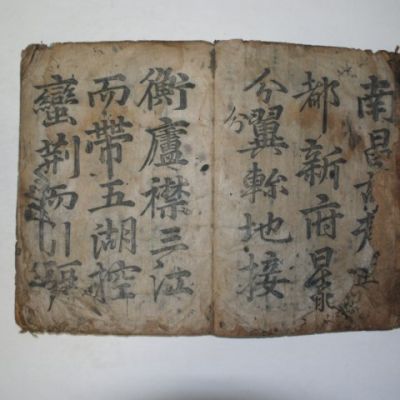 南昌
都新府星
分翼軫地接
分
衡廬襟三江
而帶五湖控
蠻荊而引甌